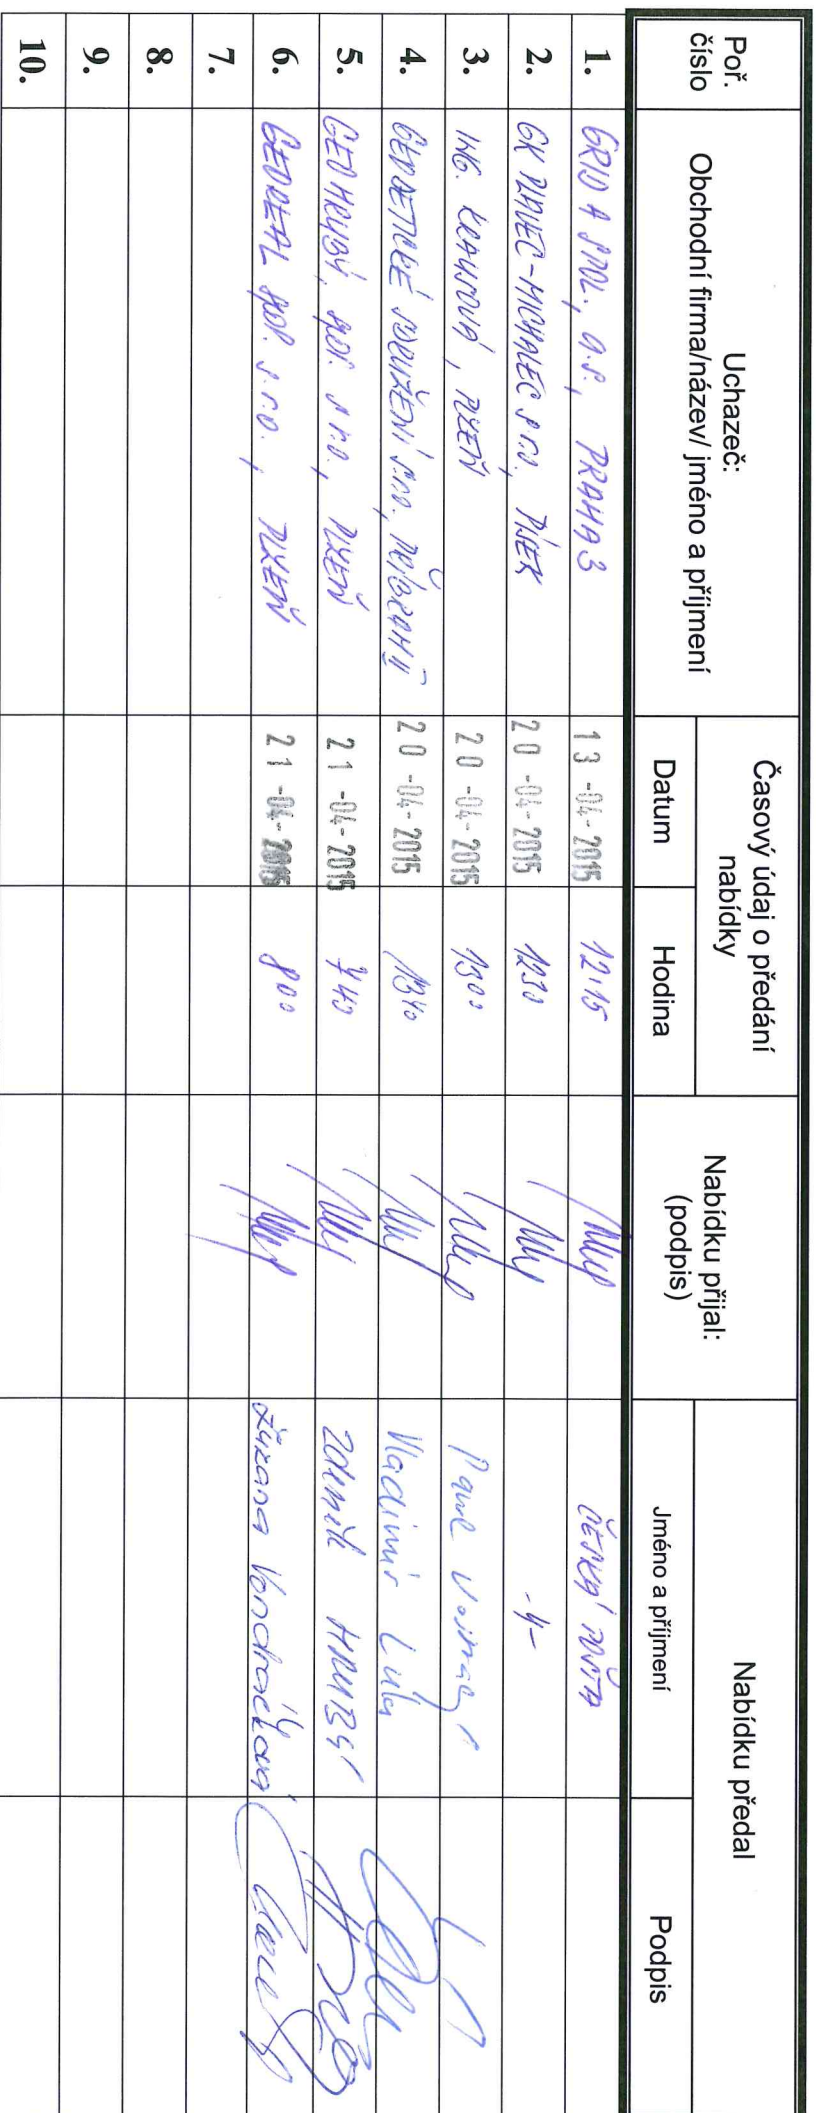 Poř. číslo
Uchazeč:
Obchodní firma/název/ jméno a příjmení
Časový údaj o předání nabídky
Datum
Hodina
Nabídku přijal:
(podpis)
Nabídku předal
Jméno a příjmení
Podpis
1. GRID A SPOL., a.s., PRAHA 3 13 -04- 2015 12:15 ČESKÁ POŠTA
2. GK PLAVEC-MICHALEC s.r.o., PÍSEK 20 -04- 2015 1230 -4-
3. ING. KRAUSOVÁ, PLZEŇ 20 -04- 2015 1300 Pavel
4. GEODETICKÉ SDRUŽENÍ s.r.o., PŘÍBRAM II 20 -04- 2015 1340 Vladimír
5. GEO HRUBÝ, spol. s r.o., PLZEŇ 21 -04- 2015 740 Zdeněk HRUBÝ
6. GEOREAL spol. s.r.o., PLZEŇ 21 -04- 2015 800 Zuzana Vondráčková
7.
8.
9.
10.